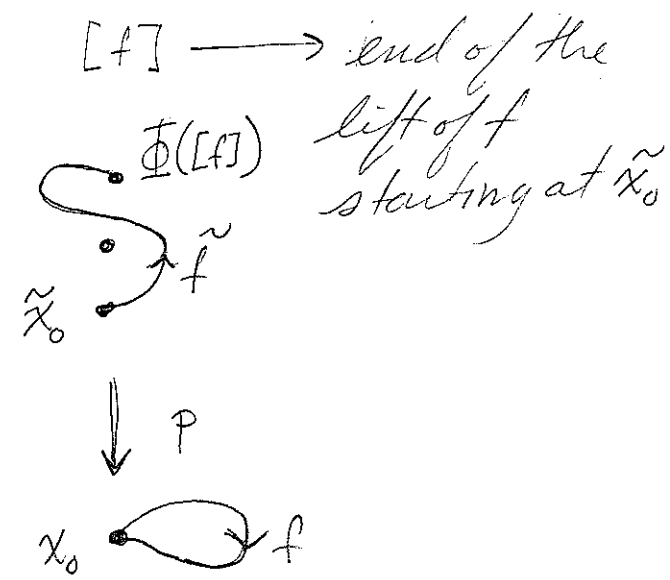 [f] ⟶ end of the
lift of f
starting at x̃₀
Φ([f])
f̃
x̃₀
p
x₀
f